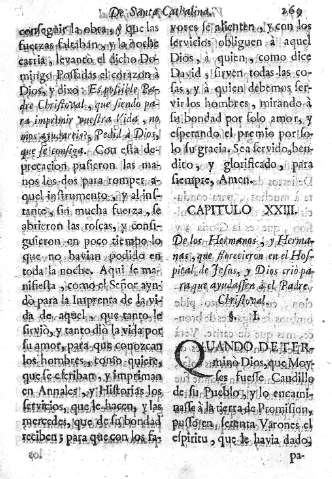 De Santa Catalina. 269
conseguir la obra, y que las
fuerzas faltaban, y la noche
caria, levantò el dicho Do-
mingo Possadas el corazòn à
Dios, y dixo: Es possible Pa-
dre Christoval, que siendo pa-
ra imprimir vuestra Vida, no
nos ayudareis? Pedid à Dios,
que se consiga. Con esta de-
precacion pusieron las ma-
nos los dos para romper a-
quel instrumento, y al ins-
tante, sin mucha fuerza, se
abrieron las roscas, y consi-
guieron en poco tiempo lo
que no havian podido en
toda la noche. Aqui se ma-
nifiesta, como el Señor ayu-
dò para la Imprenta de la vi-
da de aquel, que tanto le
sirviò, y tanto diò la vida por
su amor, para que conozcan
los hombres, como quiere,
que se escriban, y Impriman
en Annales, y Historias los
servicios, que le hacen, y las
mercedes, que de su bondad
reciben; para que con los fa-
vores se alienten, y con los
servicios obliguen à aquel
Dios, à quien, como dice
David, sirven todas las co-
sas, y à quien debemos ser-
vir los hombres, mirando à
su bondad por solo amor, y
esperando el premio por so-
lo su gracia. Sea servido, ben-
dito, y glorificado, para
siempre, Amen.
CAPITULO XXIII.
De los Hermanos, y Herma-
nas, que florecieron en el Hos-
pital de Jesus, y Dios criò pa-
ra que ayudassen à el Padre
Christoval.
§. I.
QUANDO DETER-
minò Dios, que Moy-
ses fuesse Caudillo
de su Pueblo, y lo encami-
nasse à la tierra de Promission,
puso en setenta Varones el
espiritu, que le havia dado,
pa-